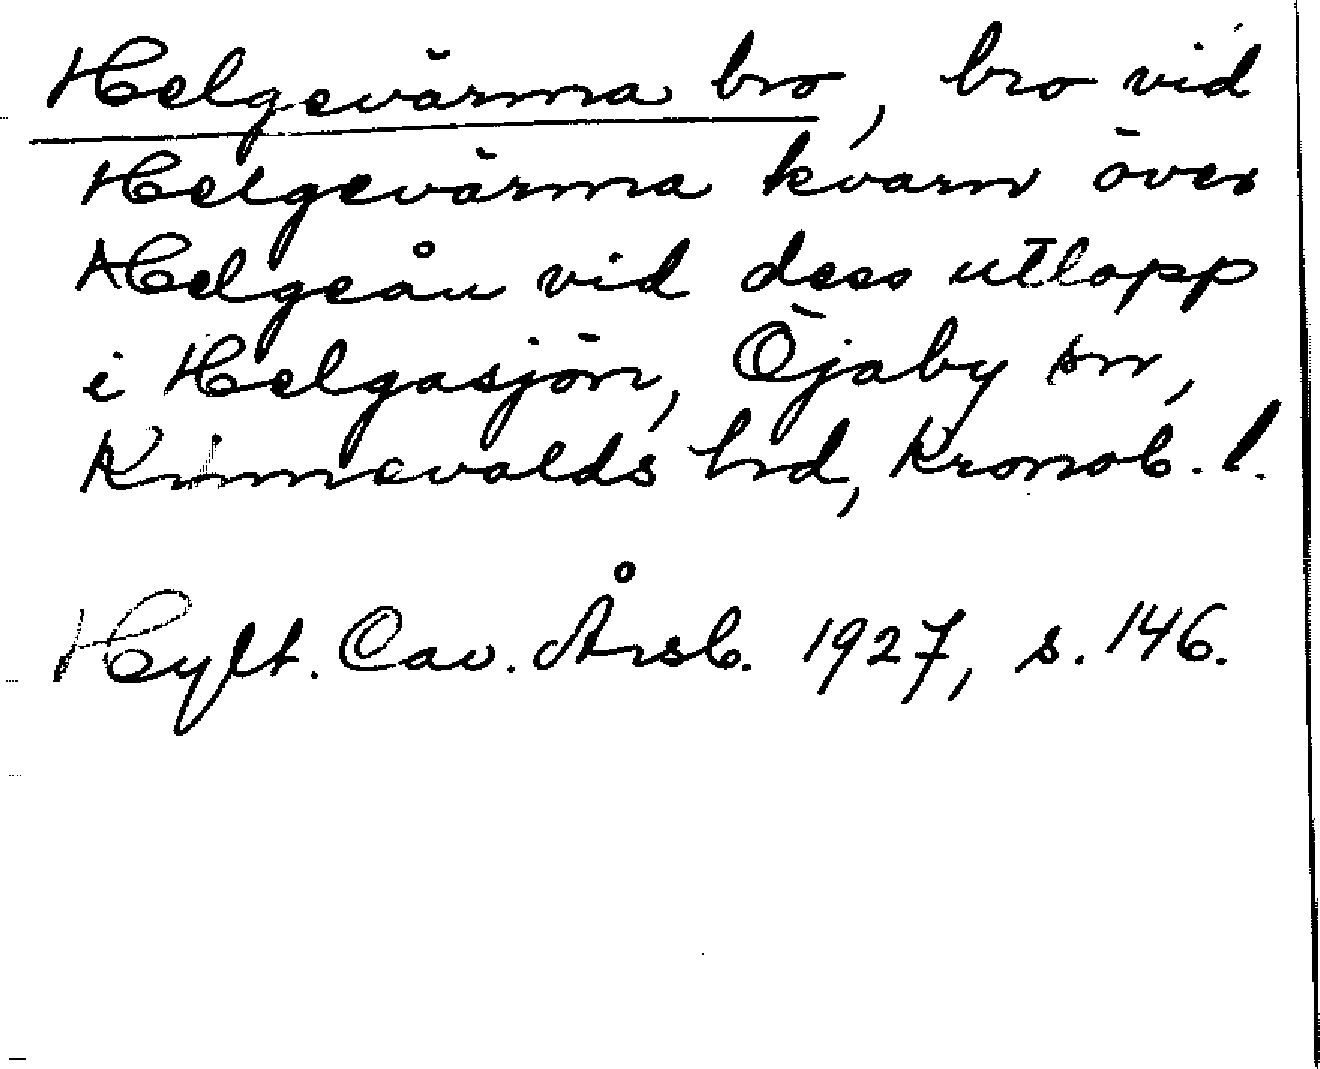 Helgevärma bro, bro vid
Helgevärma kvarn över
Helgeån vid dess utlopp
i Helgasjön, Öjaby sn,
Kinnevalds hrd, Kronob. l.
Hylt. Cav. Årsb. 1927, s. 146.